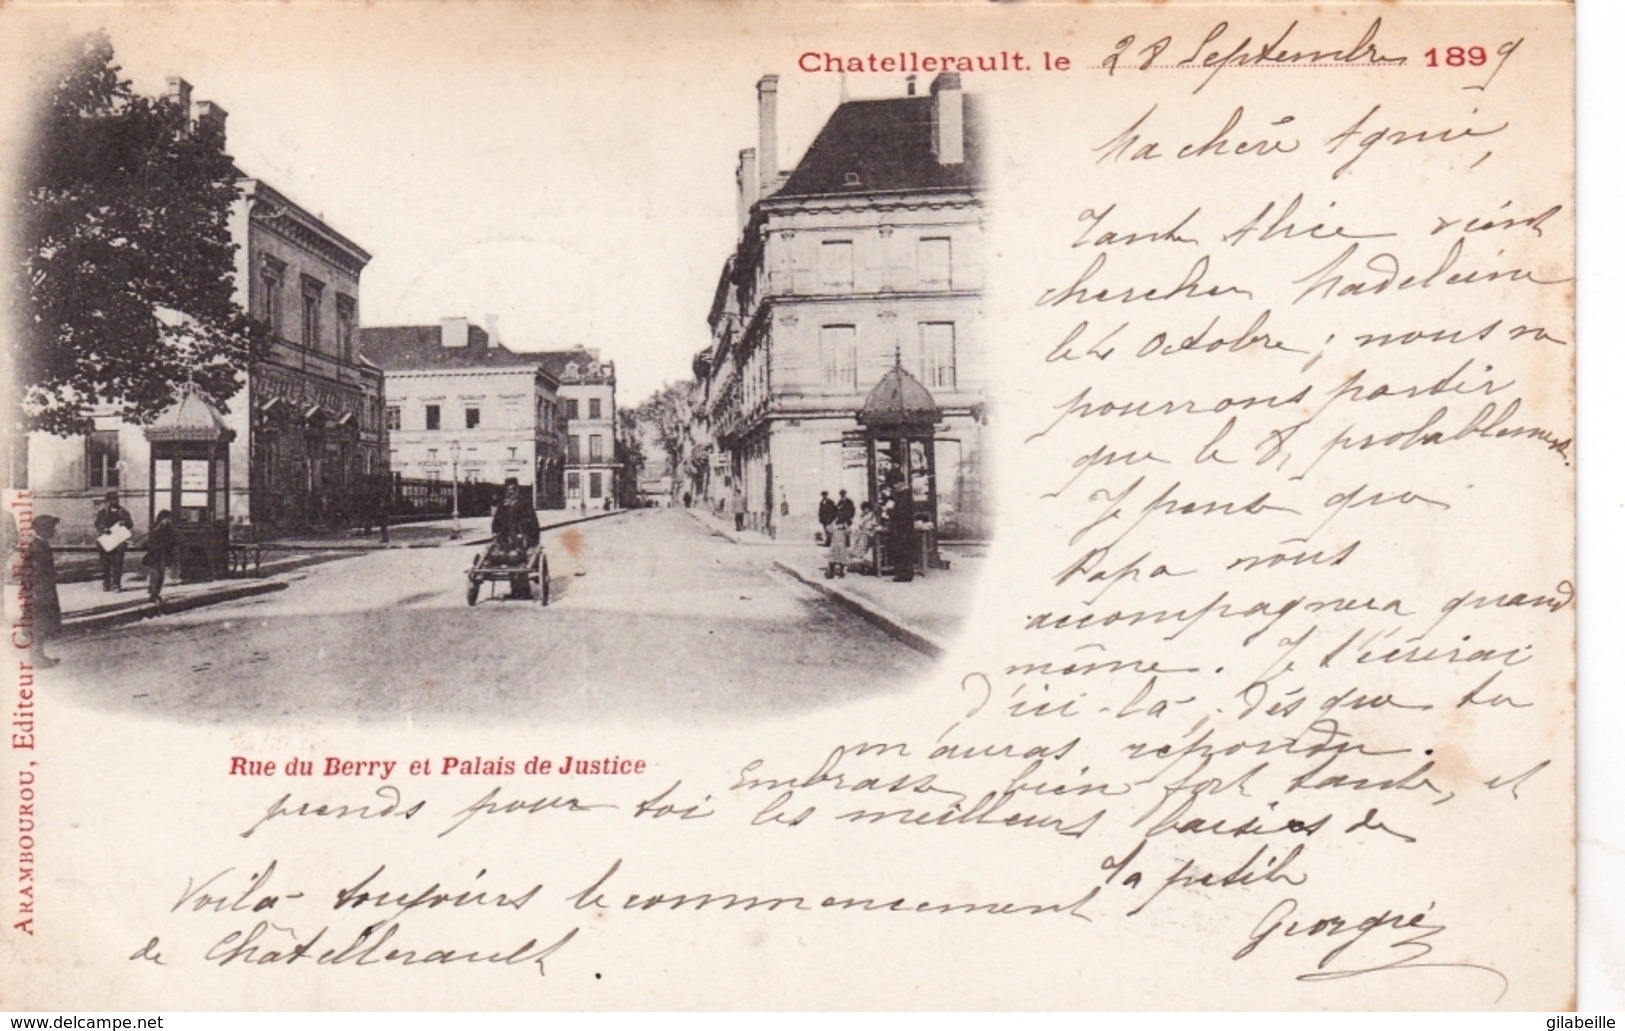 Chatellerault. le 28 Septembre 1899
Ma chère Agnie,
Tante Alice vient
chercher Madeleine
le 4 Octobre; nous ne
pourrons partir
que le 8, probablement.
Je pense que
Papa nous
accompagnera quand
même. Je t'écrirai
d'ici-là, dès que tu
m'auras répondu.
Embrasse bien fort tante, et
prends pour toi les meilleurs baisers de
Ta petite
Georgie
Voilà toujours le commencement
de Châtellerault.
Rue du Berry et Palais de Justice
ARAMBOUROU, Editeur Chatellerault
delcampe.net
gilabeille